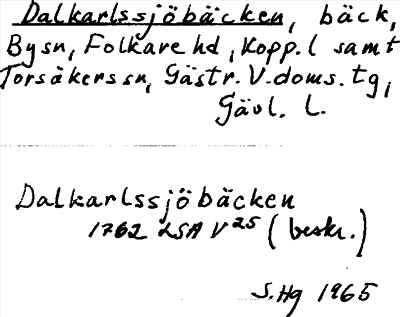 Dalkarlssjöbäcken, bäck,
By sn, Folkare hd, Kopp. l samt
Torsåkers sn, Gästr. V. doms. tg,
Gävl. L.
Dalkarlssjöbäcken
1762 LSA V 25 (beskr.)
S.Hg 1965